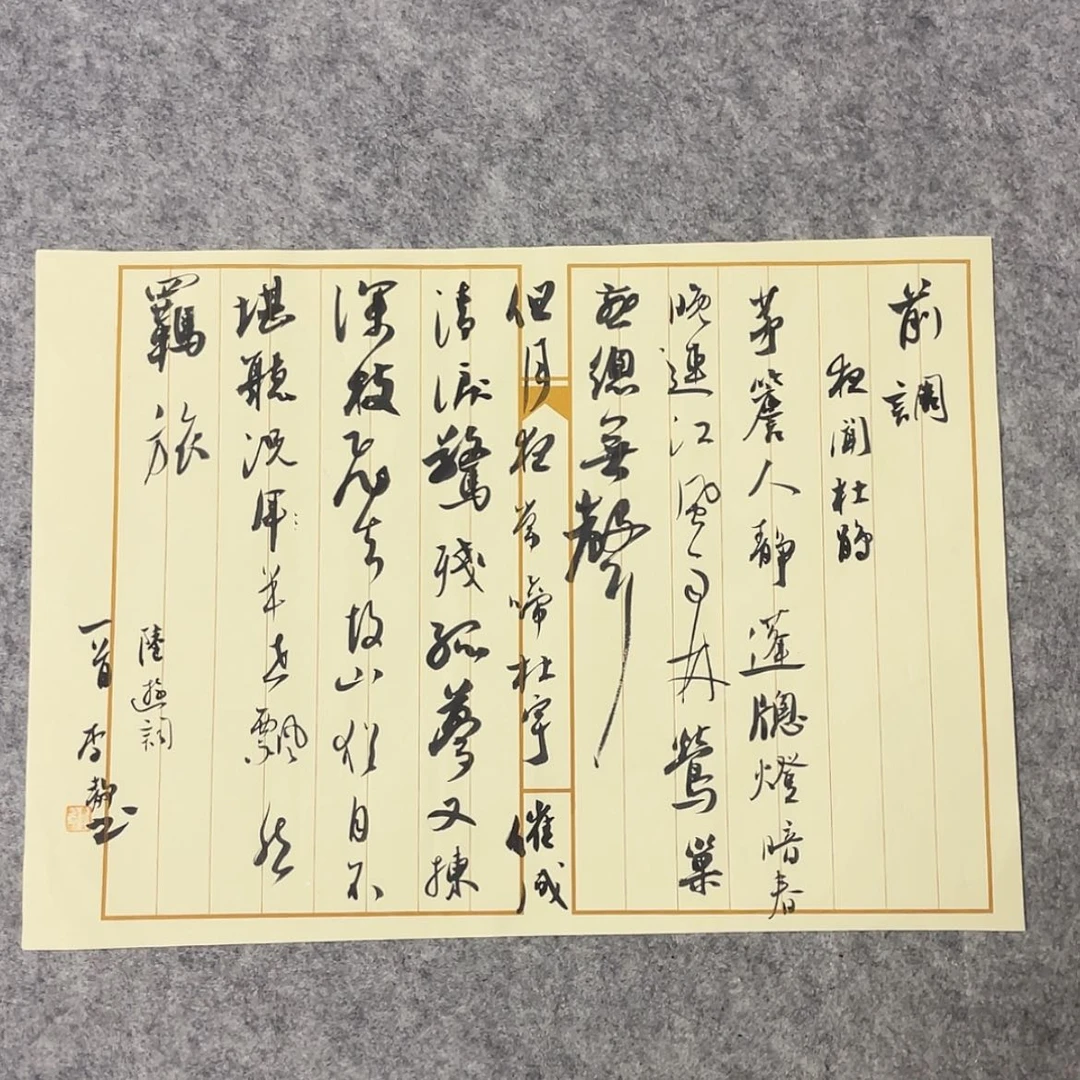 前調
夜聞杜鵑
茅簷人靜蓬牕燈暗春
晚連江風雨林鶯巢
燕總無聲
但月夜常啼杜宇催成
清淚驚殘孤夢又揀
深枝飛去故山猶自不
堪聽況半世飄然
羈旅
陸遊詞
一首 李靜書